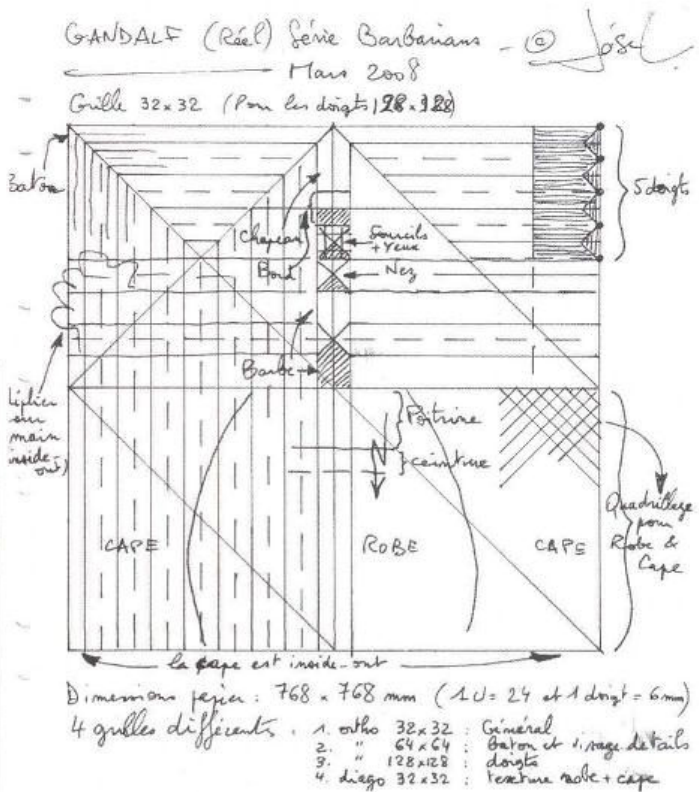 GANDALF (Réel) Série Barbarians - © José
Mars 2008
Grille 32x32 (Pour les doigts 128x128)
Baton
5 doigts
Chapeau
Sourcils
+ Yeux
Bord
Nez
Barbe
main
inside-out)
Poitrine
ceinture
Quadrillage
pour
Robe &
Cape
CAPE
ROBE
CAPE
la cape est inside-out
Dimensions papier : 768 x 768 mm (1U = 24 et 1 doigt = 6mm)
4 grilles différents . 1. ortho 32x32 : Général
2. " 64x64 : Baton et visage details
3. " 128x128 : doigts
4. diago 32x32 : texture robe + cape